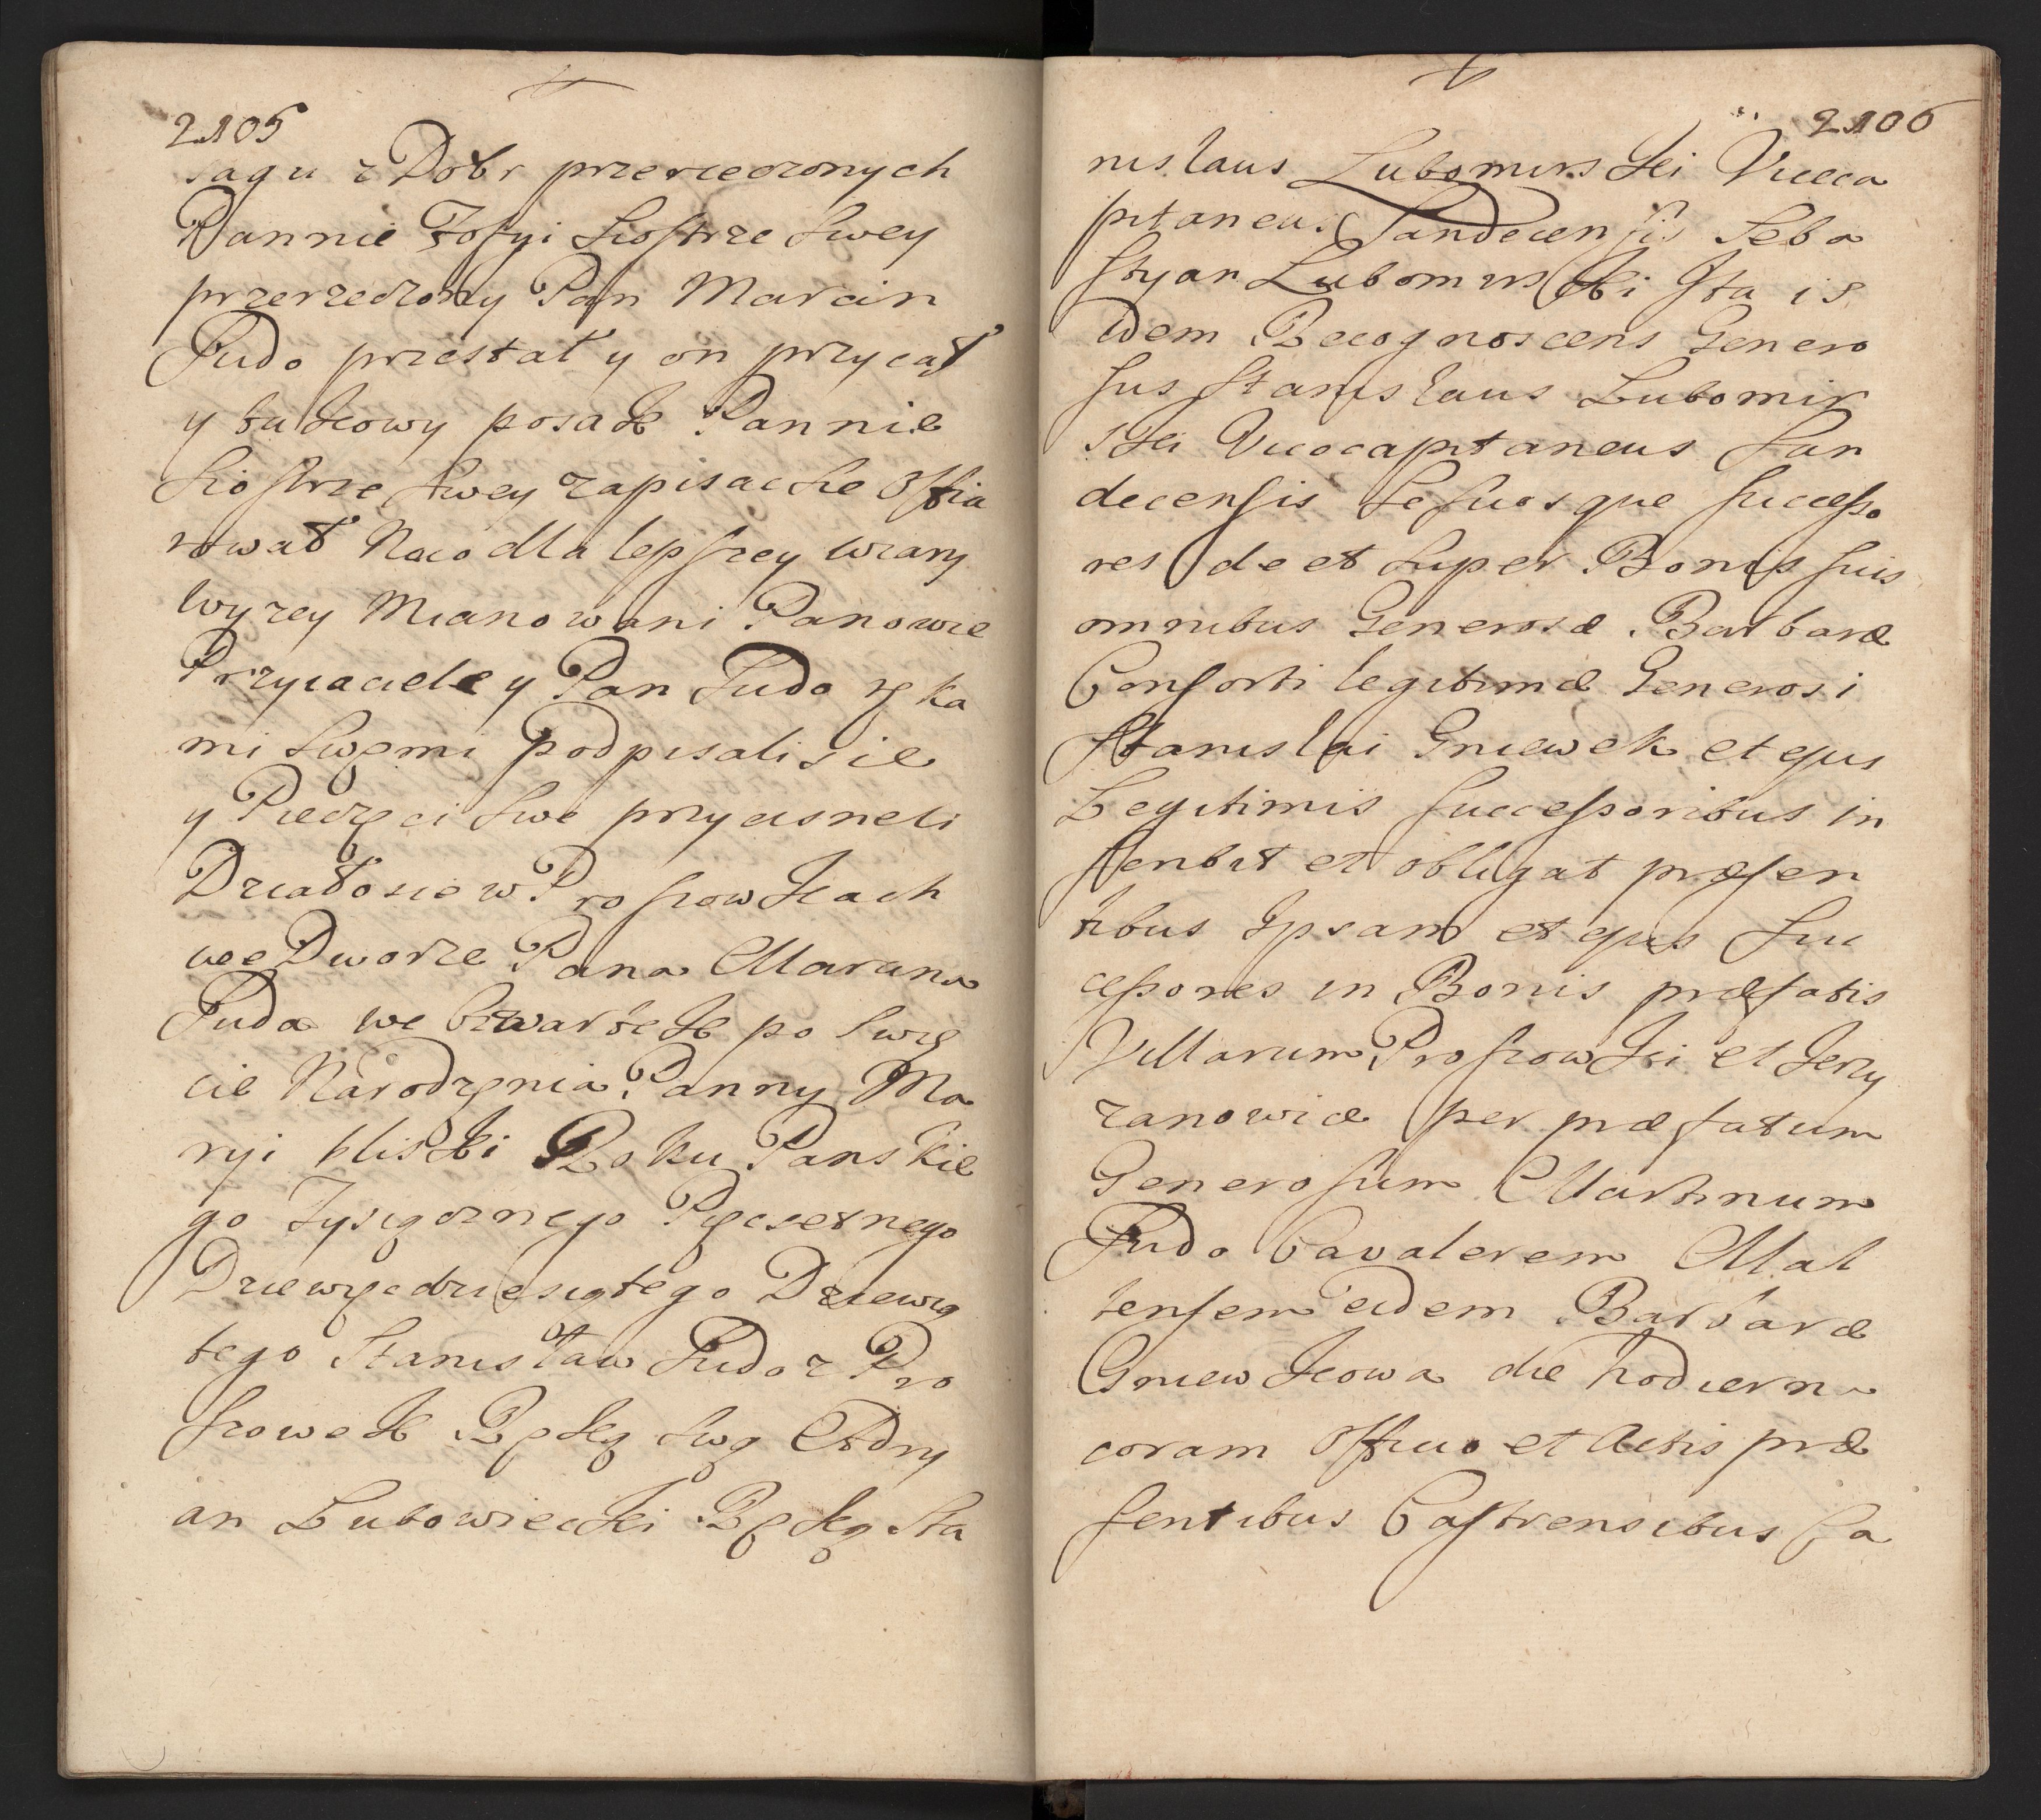 2105
sagu z Dobr przerzeczonych
Pannie Zofyi Siostrze Swey
przerzeczony Pan Marcin
Pudo przestał y on przycał
y takowy posak Pannie
Siostrze Swey zapisac sie Offia
rował Naco dla lepszey wiary
wyzey Mianowani Panowie
Przyiaciele y Pan Pudo ręka
mi Swemi podpisali sie
y Pieczęci Swe przycisneli
Działo sie w Proszowkach
we Dworze Pana Marcina
Puda we Czwartek po Swię
cie Narodzęnia Panny Ma
ryi bliski Roku Panskie
go Tysiącznego Pięcsetnego
Dziewięcdziesiątego Dziewią
tego Stanisław Pudo z Pro
szowek Ręką Swą Adry
an Lubowiecki Ręką Sta
2106
nislaus Lubomirski Vicca
pitaneus Sandecensis Seba
styan Lubomirski Ita is
dem Recognoscens Genero
sus Stanislaus Lubomir
ski Vicecapitaneus San
decensis Se suosque successo
res de et super Bonis suis
omnibus Generosæ Barbaræ
Consorti legitimæ Generosi
Stanislai Gniewek et ejus
Legitimis successoribus in
scribit et obligat præsen
tibus Ipsam et ejus suc
cessores in Bonis præfatis
Villarum Proszowki et Jerzy
zanowice per præfatum
Generosum Martinum
Pudo Cavalerem Mal
tensem eidem Barbaræ
Gniewkowa die hodierna
coram Officio et Actis præ
sentibus Castrensibus fa